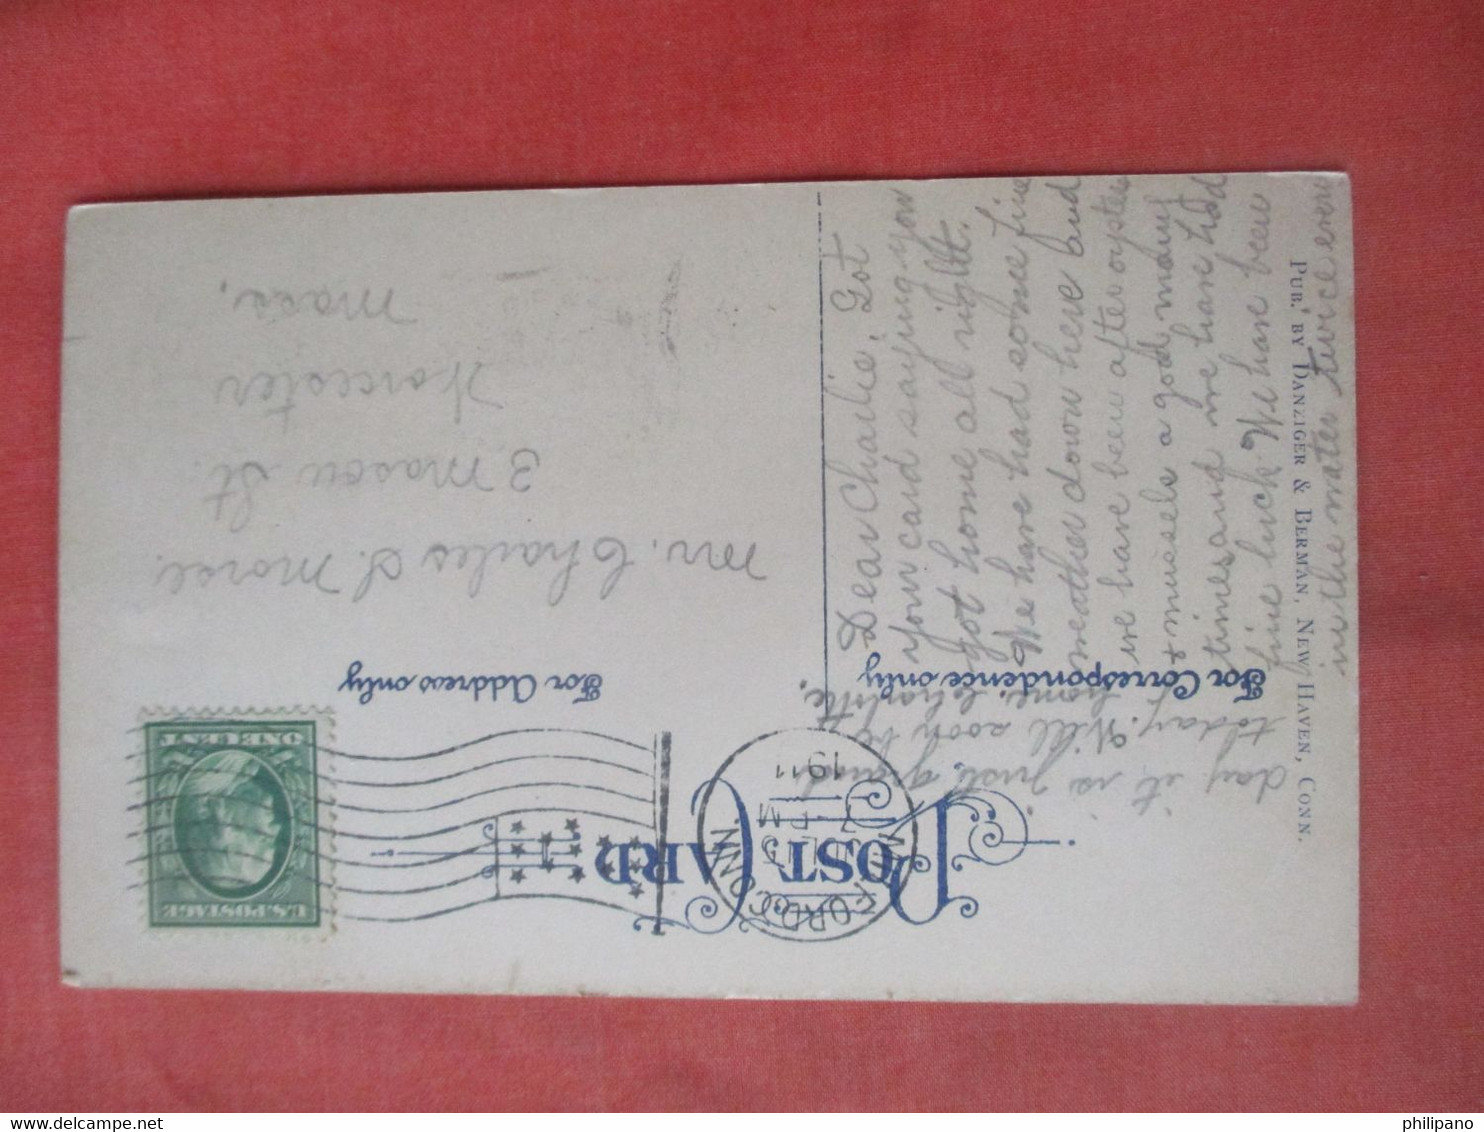 POST CARD
For Correspondence only
For Address only
U.S. POSTAGE
ONE CENT
MILFORD CONN.
7 PM
1911
Dear Charlie, Got
your card saying you
got home all right.
We have had some fine
weather down here and
we have been after oysters
& mussels a good many
times and we have had
fine luck We have been
in the water twice every
day it is just grand
today. Will soon be
home. Charlotte.
Mr. Charles S. Morse.
3 Mason St.
Worcester
Mass.
PUB. BY DANZIGER & BERMAN, NEW HAVEN, CONN.
philipano